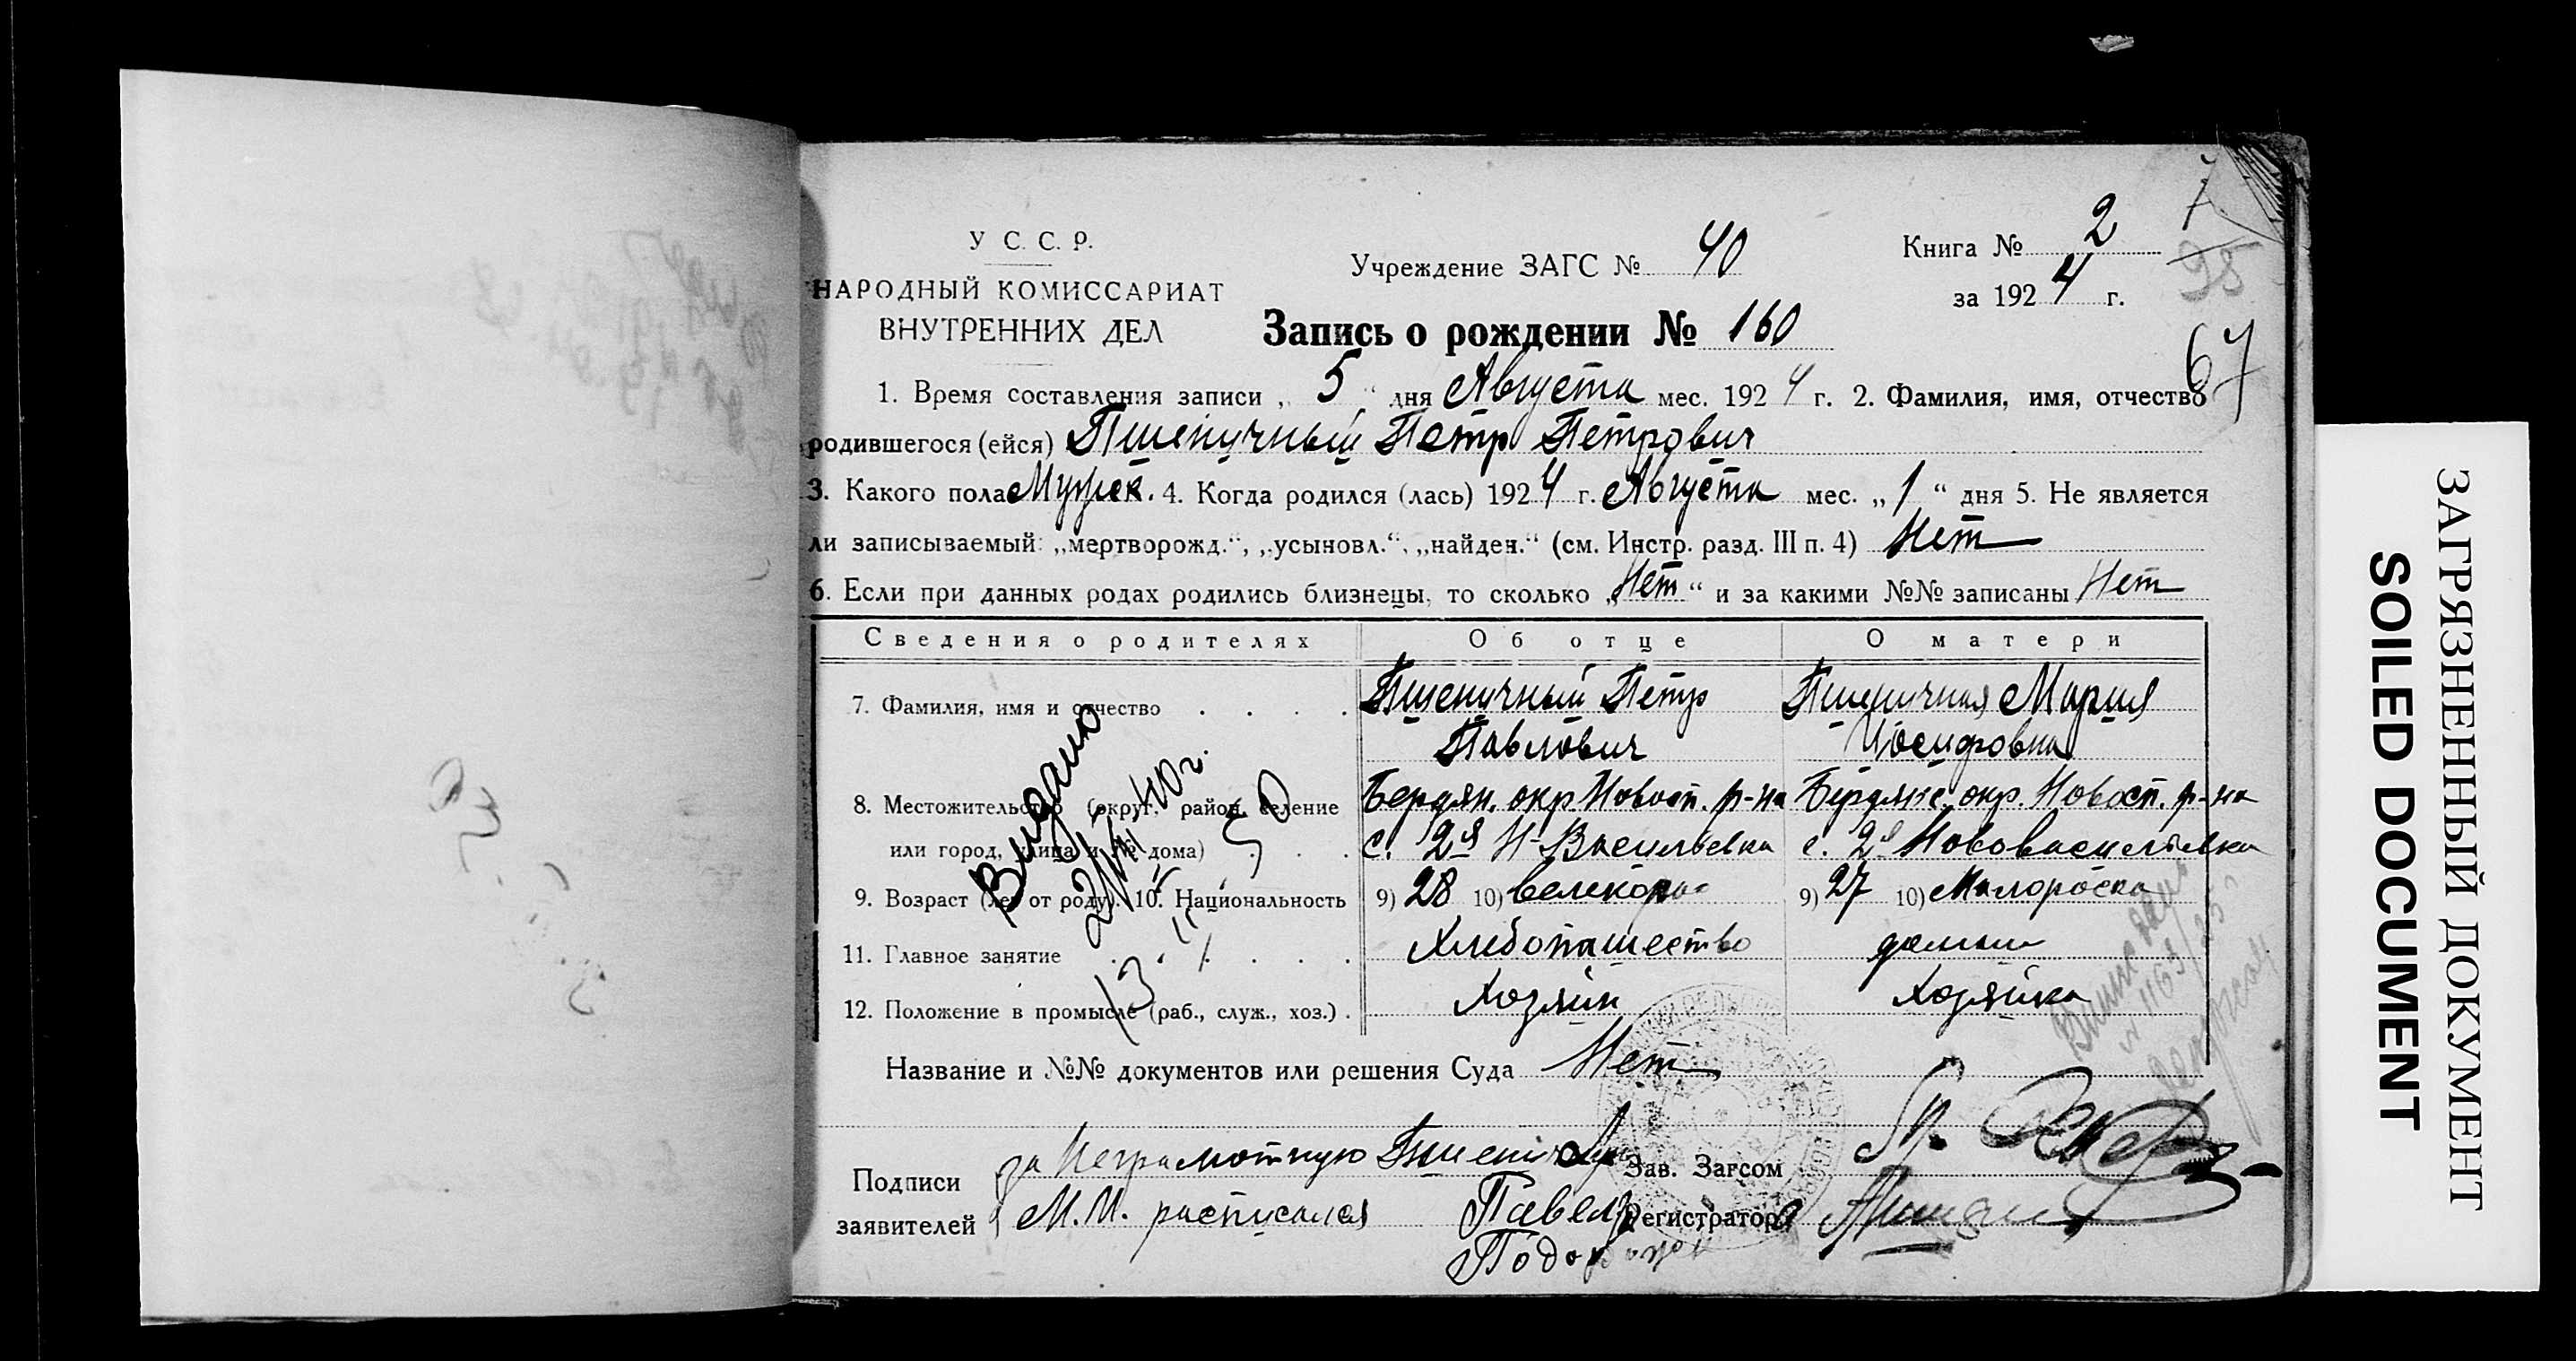 У С. С. Р.
НАРОДНЫЙ КОМИССАРИАТ
ВНУТРЕННИХ ДЕЛ
Учреждение ЗАГС № 40
Книга № 2
за 1924 г.
7
25
67
Запись о рождении № 160
1. Время составления записи „ 5 " дня Августа мес. 1924 г. 2. Фамилия, имя, отчество
родившегося (ейся) Пшеничный Петр Петрович
3. Какого пола Мужск. 4. Когда родился (лась) 1924 г. Августа мес. „ 1 " дня 5. Не является
ли записываемый: „мертворожд.", „усыновл.", „найден." (см. Инстр. разд. III п. 4) Нет
6. Если при данных родах родились близнецы, то сколько „Нет" и за какими №№ записаны Нет
Сведения о родителях Об отце О матери
7. Фамилия, имя и отчество . . . . Пшеничный Петр Пшеничная Мария
Павлович Иосифовна
8. Местожительство (округ, район, селение Бердян. окр. Новосп. р-на Бердянс. окр. Новосп. р-на
или город, улица и № дома) . . . с. 2я Н-Васильевка с. 2я Нововасильевка
9. Возраст (лет от роду). 10. Национальность 9) 28 10) Великорос 9) 27 10) Малороска
11. Главное занятие . . . . . Хлебопашество домаш
12. Положение в промысле (раб., служ., хоз.) . Хозяин Хозяйка
Видано
Название и №№ документов или решения Суда Нет
Подписи
заявителей
за Неграмотную
М. И. расписался Павел
Зав. Загсом
Регистратор
ЗАГРЯЗНЕННЫЙ ДОКУМЕНТ
SOILED DOCUMENT